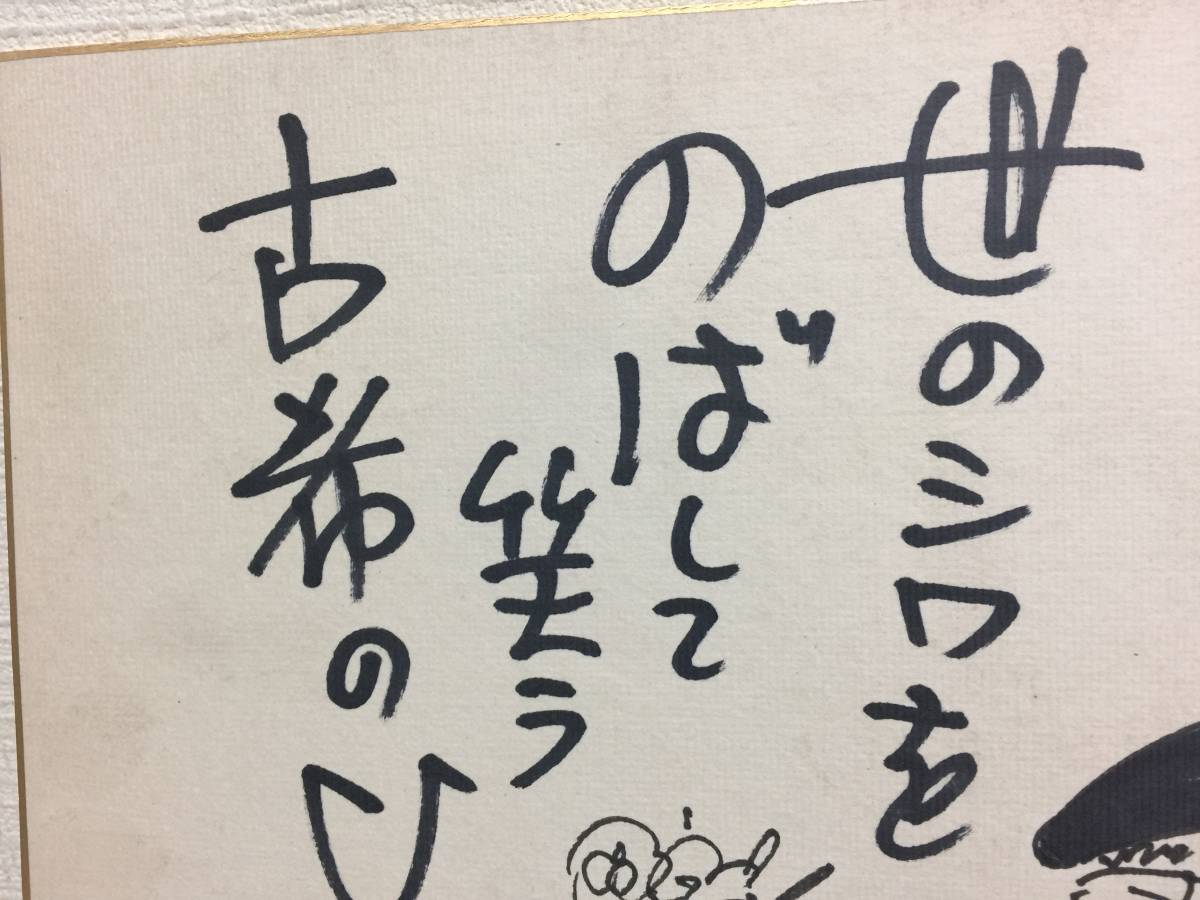 世のシワを
のばして
笑う
古希のひ